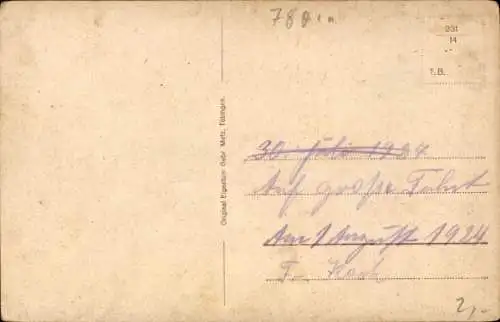 780 in
231
14
T.B.
Original Eigentum Gebr. Metz, Tübingen.
30. Juli 1924
Auf große Fahrt
Am 1 August 1924
T. Koch
2,-